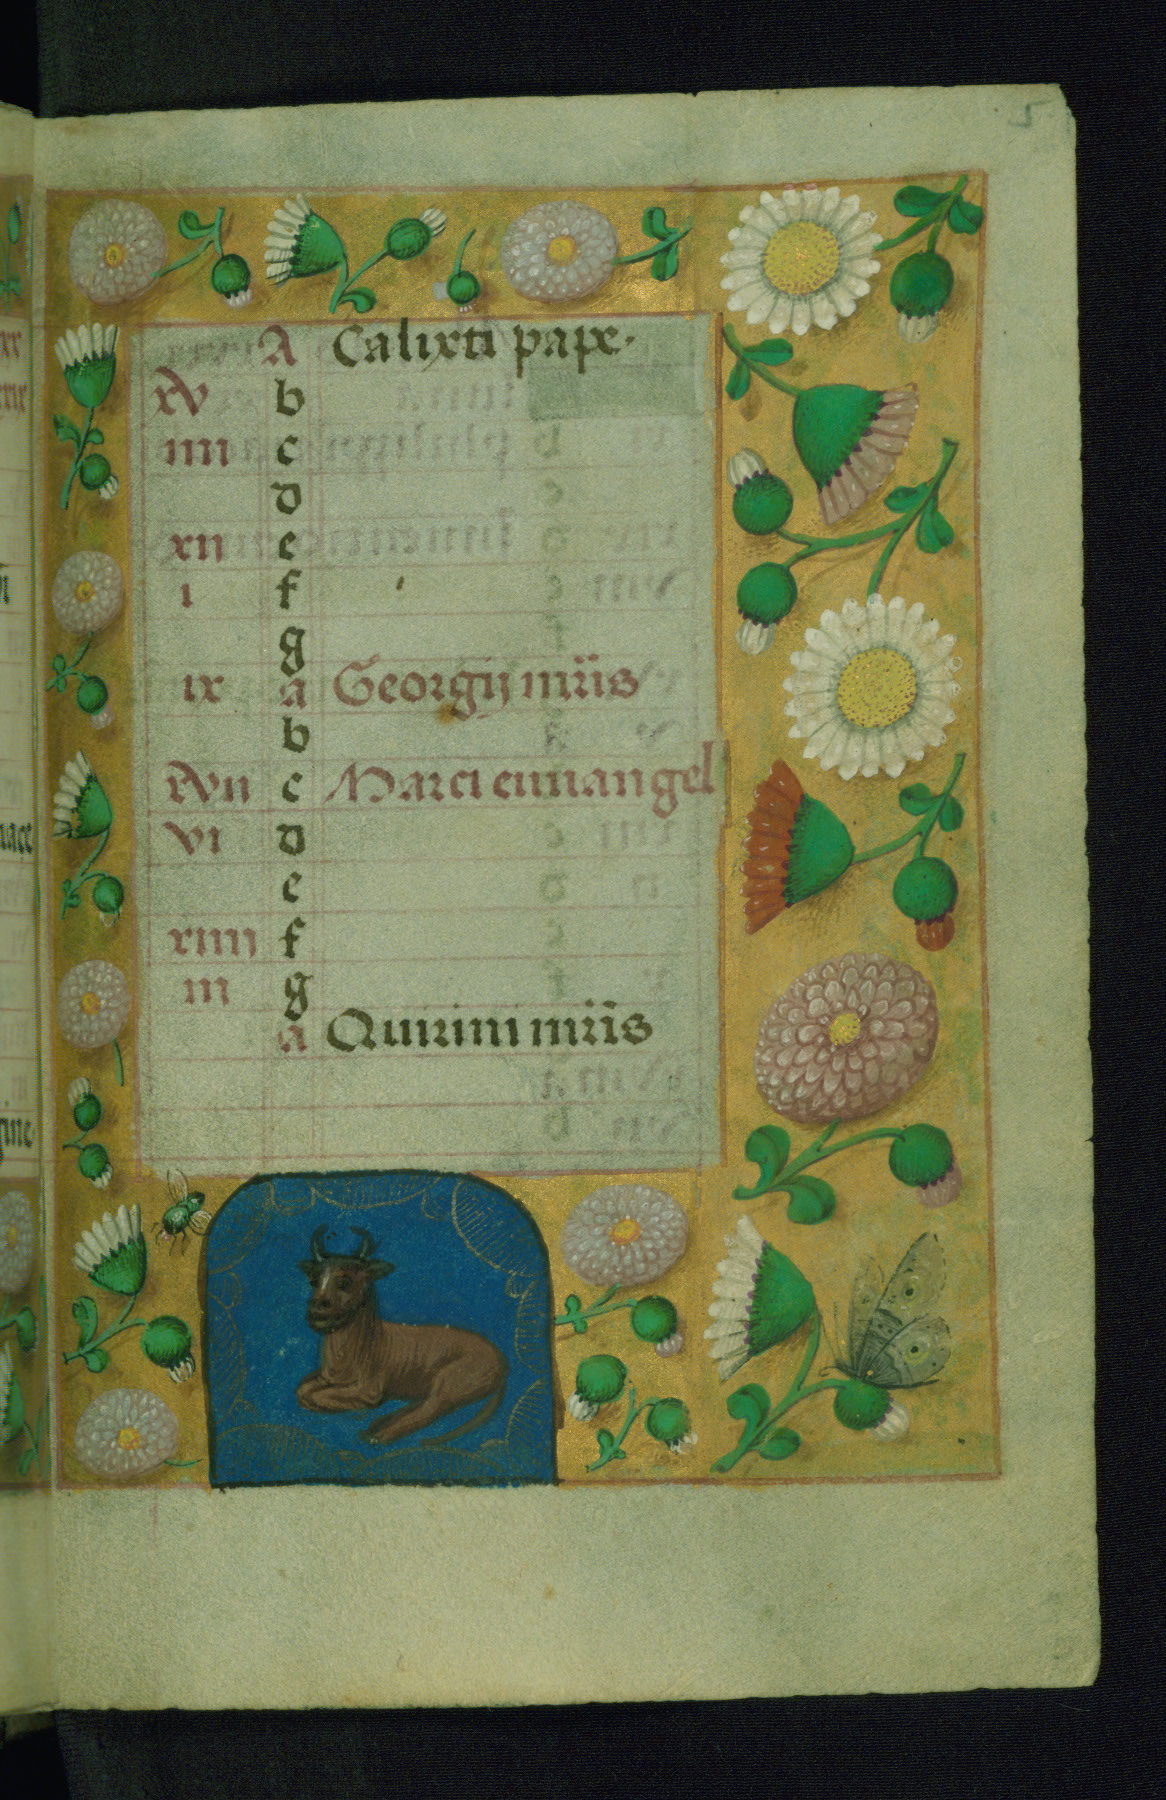 5
A Calixti pape·
xv b
iiii c
d
xii e
i f
g
ix a Georgij mr̄is
b
xvii c Marci euuangel
vi d
e
xiiii f
iii g
a Quirini mr̄is